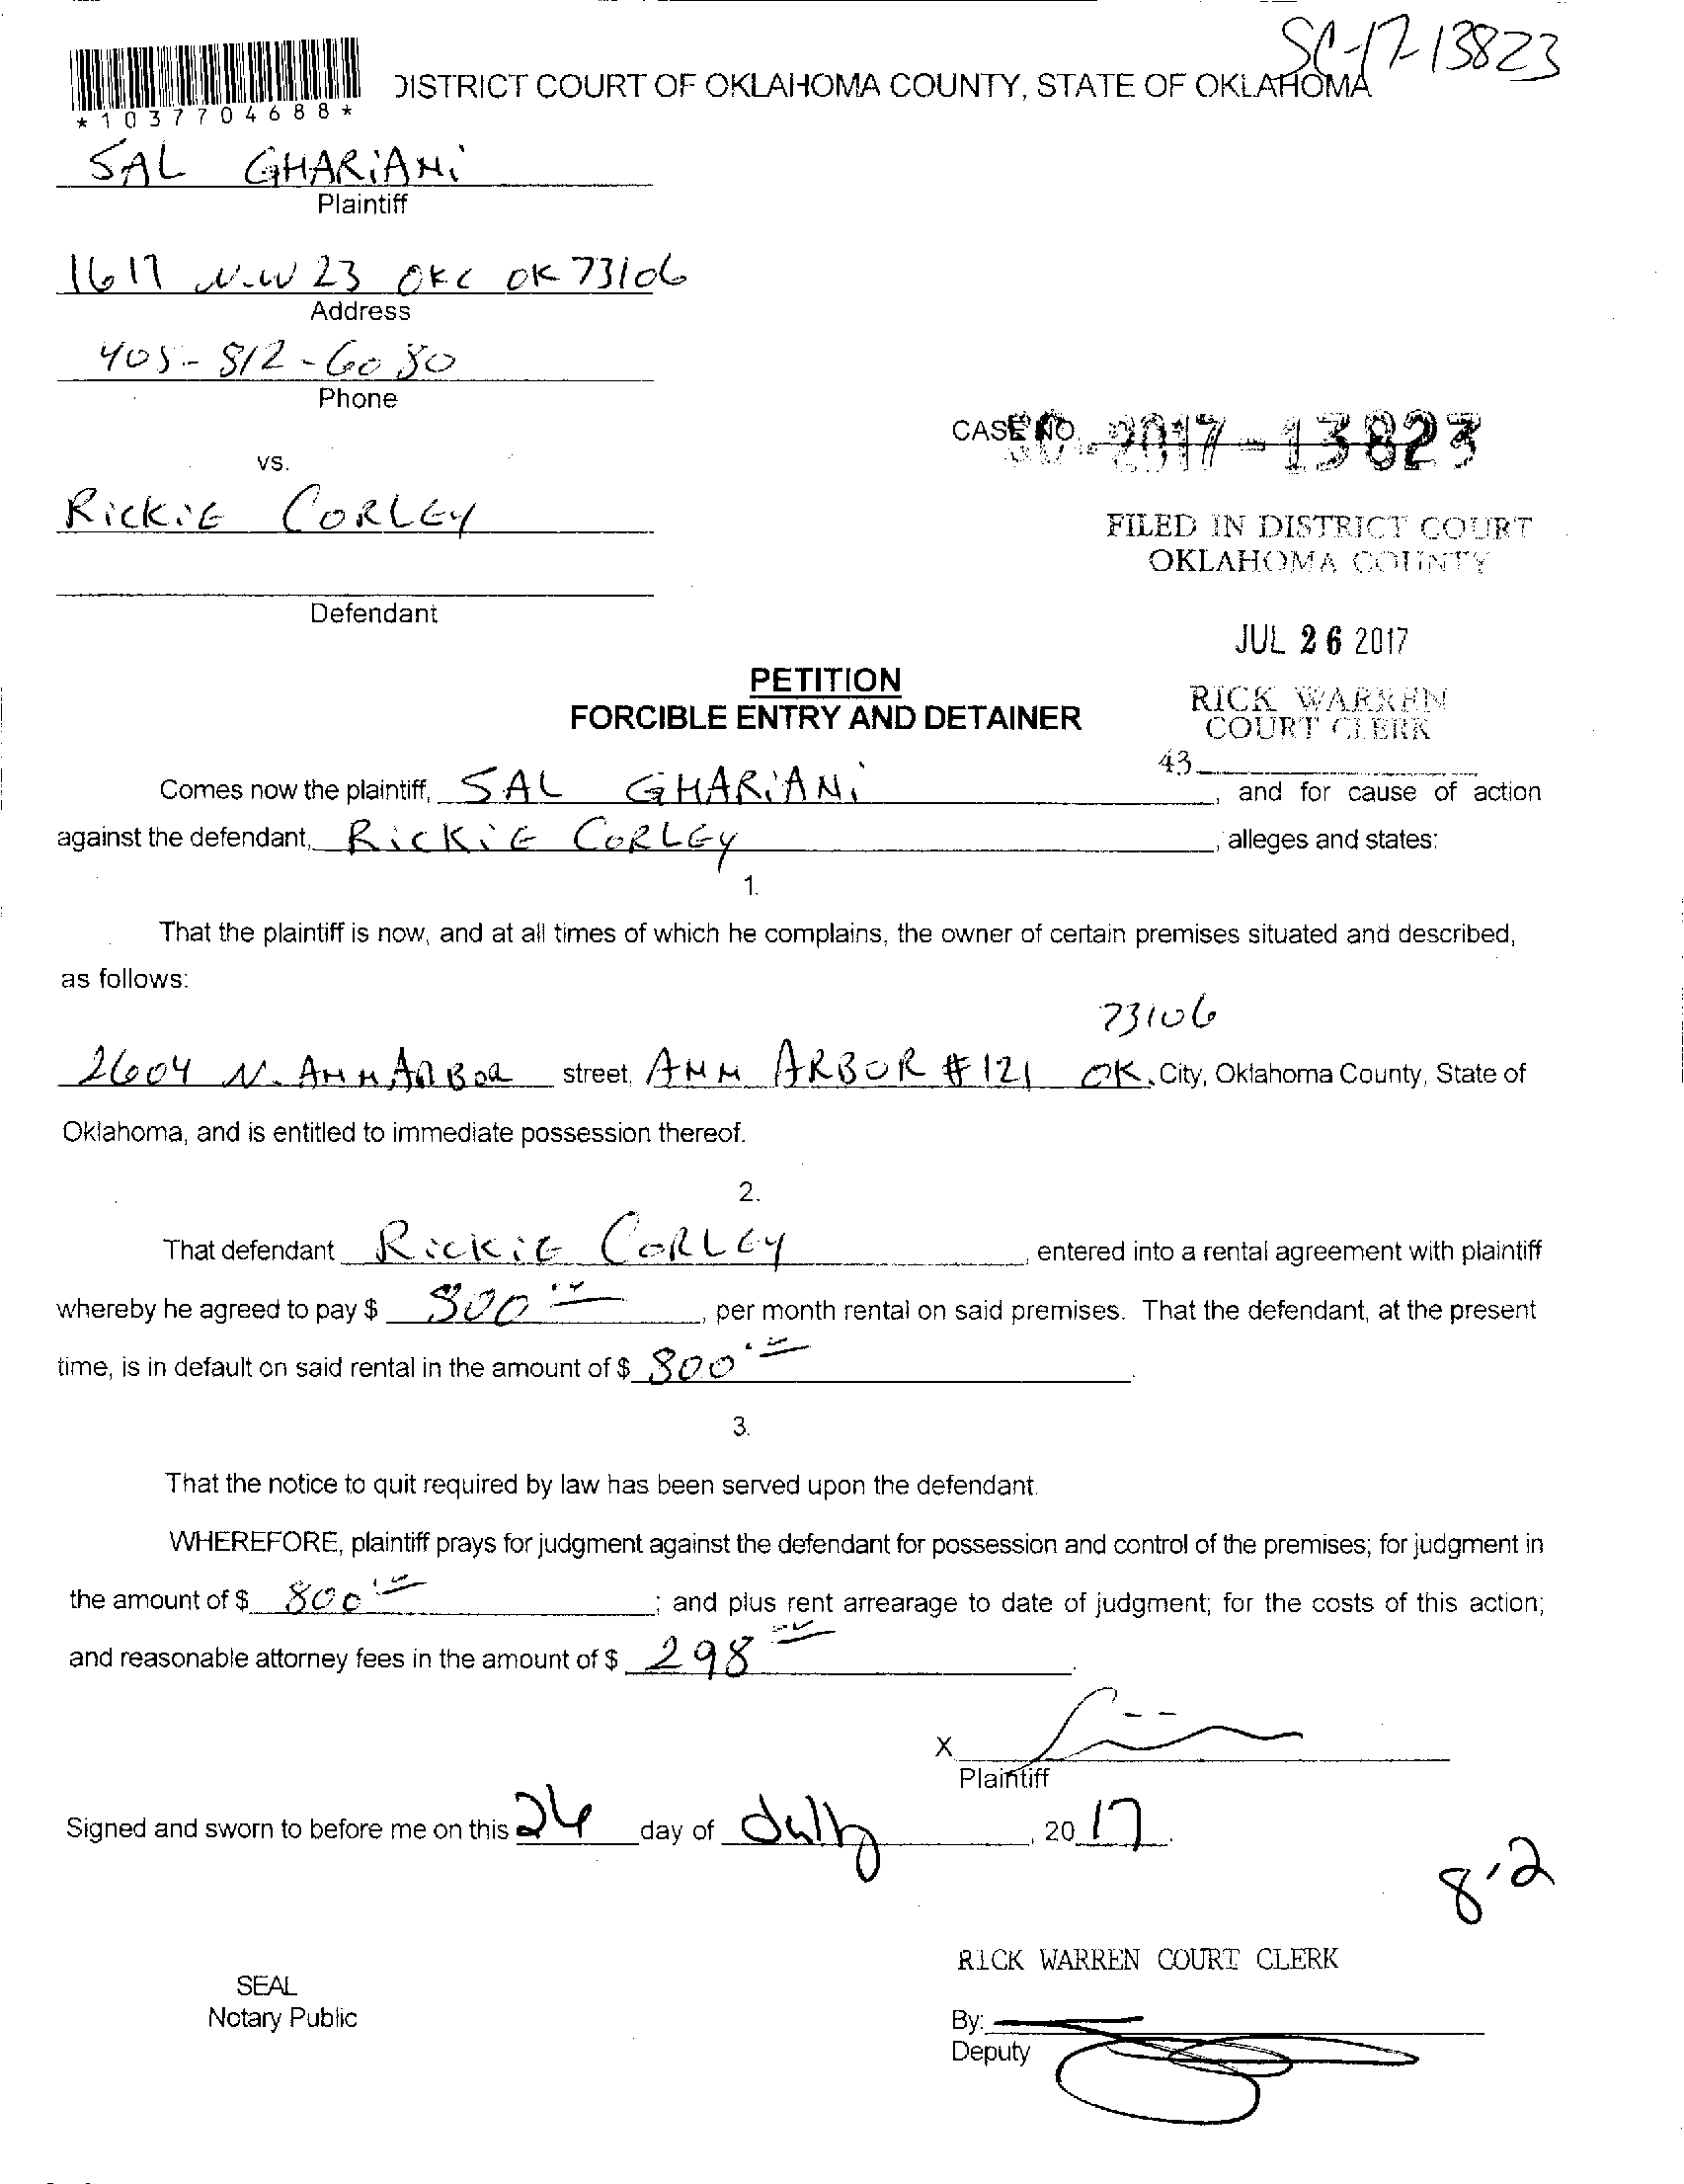 SC-17-13823
DISTRICT COURT OF OKLAHOMA COUNTY, STATE OF OKLAHOMA
*1037704688*
SAL GHARiANi
Plaintiff
1617 N.W 23 OKC OK 73106
Address
405-812-6080
Phone
CASE NO. SC-2017-13823
vs.
RickiE CORLEY
FILED IN DISTRICT COURT
OKLAHOMA COUNTY
Defendant
JUL 26 2017
PETITION
FORCIBLE ENTRY AND DETAINER
RICK WARREN
COURT CLERK
43
Comes now the plaintiff, SAL GHARiANi, and for cause of action
against the defendant, RickiE CORLEY, alleges and states:
1.
That the plaintiff is now, and at all times of which he complains, the owner of certain premises situated and described,
as follows:
73106
2604 N. ANN ARBOR street, ANN ARBOR #121 OK. City, Oklahoma County, State of
Oklahoma, and is entitled to immediate possession thereof.
2.
That defendant RickiE CORLEY, entered into a rental agreement with plaintiff
whereby he agreed to pay $ 800, per month rental on said premises. That the defendant, at the present
time, is in default on said rental in the amount of $ 800.
3.
That the notice to quit required by law has been served upon the defendant.
WHEREFORE, plaintiff prays for judgment against the defendant for possession and control of the premises; for judgment in
the amount of $ 800; and plus rent arrearage to date of judgment; for the costs of this action;
and reasonable attorney fees in the amount of $ 298.
X
Plaintiff
Signed and sworn to before me on this 26 day of July, 2017.
8-2
RICK WARREN COURT CLERK
SEAL
Notary Public
By:
Deputy